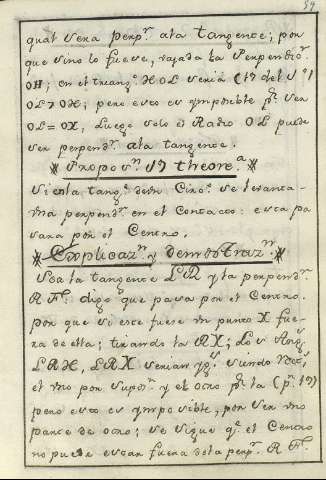 59
qual sera perp.r ala tangente; por
que sino lo fuese, vajada la Perpendic.r
OH; en el triang.o HOL seria (17 del
OL > OH; pero esto es ymposible p.r ser
OL = OX, Luego solo el Radio OL puede
ser perpend.r ala tangente.
Propos.n 17 theore.a
Si en la tang.e de un Circ.o se levanta
una perpend.r en el Contacto: esta pa
sara por el Centro.
Explicaz.n y demostraz.n
Sea la tangente LM y la perpend.r
RF. digo que pasa por el Centro.
por que si este fuese un punto X fue
ra de ella; tirando la RX; Los Ang.s
LRH, LRX serian yg.s siendo
el uno por supos.n y el otro p.r la (p.n 17)
pero esto es ymposible, por ser uno
parte de otro; se sigue q.e el Centro
no puede estar fuera dela perp.r RF.